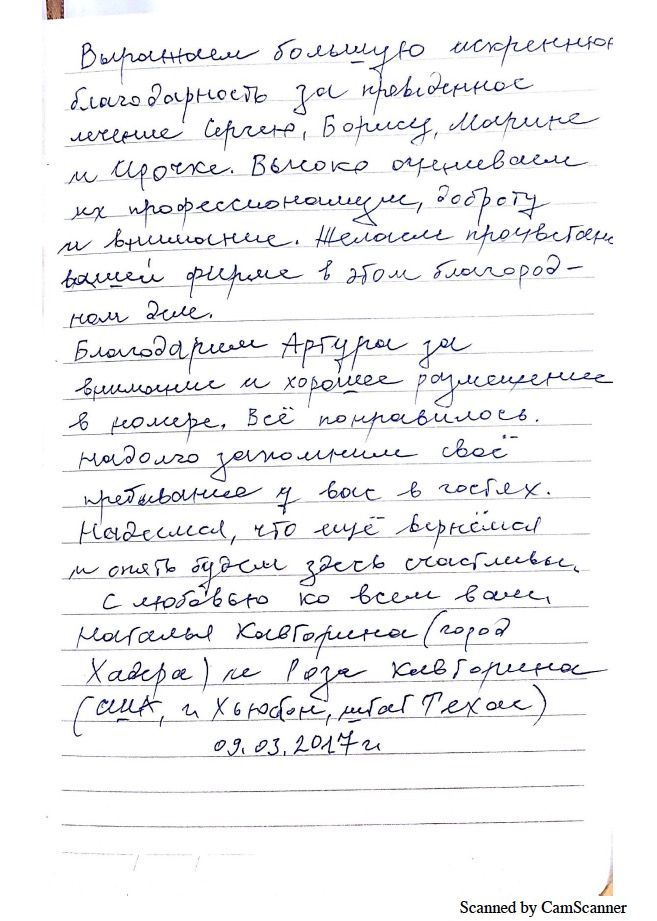 Выражаем большую искреннюю
благодарность за проведенное
лечение Сергею, Борису, Марине
и Ирочке. Высоко оцениваем
их профессионализм, доброту
и внимание. Желаем процветан
вашей фирме в этом благород-
ном деле.
Благодарим Артура за
внимание и хорошее размещение
в номере. Всё понравилось.
Надолго запомним своё
пребывание у вас в гостях.
Надеемся, что ещё вернёмся
и опять будем здесь счастливы.
С любовью ко всем вам,
Наталья Кавторина (город
Хадера) и Роза Кавторина
(США, г. Хьюстон, штат Техас)
09.03.2017 г.
Scanned by CamScanner